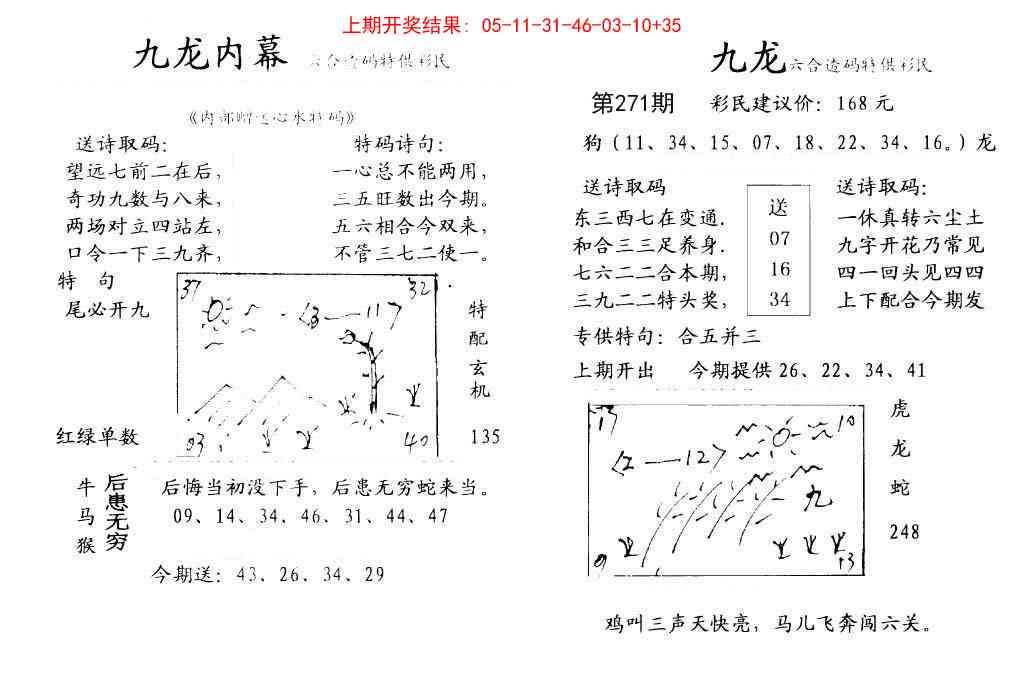 上期开奖结果: 05-11-31-46-03-10+35
九龙内幕 六合透码特供彩民
《内部赠送心水特码》
送诗取码:
望远七前二在后,
奇功九数与八来,
两场对立四站左,
口令一下三九齐,
特码诗句:
一心总不能两用,
三五旺数出今期。
五六相合今双来,
不管三七二使一。
特 句
尾必开九
红绿单数
37
32
13——11
03
40
特
配
玄
机
135
牛
马
猴
后患无穷
后悔当初没下手, 后患无穷蛇来当。
09、14、34、46、31、44、47
今期送: 43、26、34、29
九龙六合透码特供彩民
第271期 彩民建议价: 168元
狗(11、34、15、07、18、22、34、16。)龙
送诗取码
东三西七在变通.
和合三三足养身.
七六二二合本期,
三九二二特头奖,
送
07
16
34
送诗取码:
一休真转六尘土
九字开花乃常见
四一回头见四四
上下配合今期发
专供特句: 合五并三
上期开出 今期提供26、22、34、41
10
12
九
9
13
虎
龙
蛇
248
鸡叫三声天快亮, 马儿飞奔闯六关。